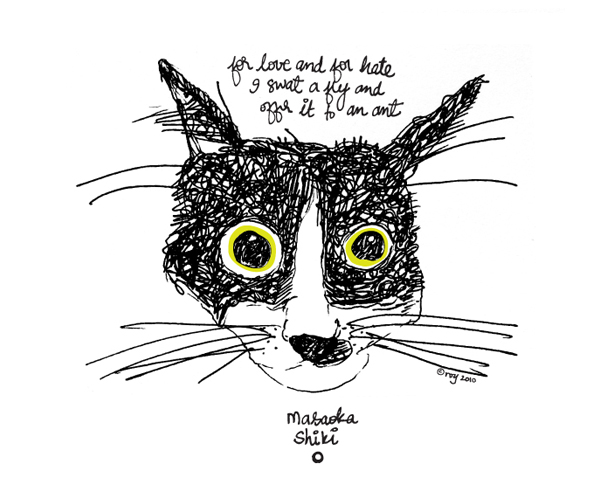 for love and for hate
I swat a fly and
offer it to an ant
©roy 2010
masaoka
shiki